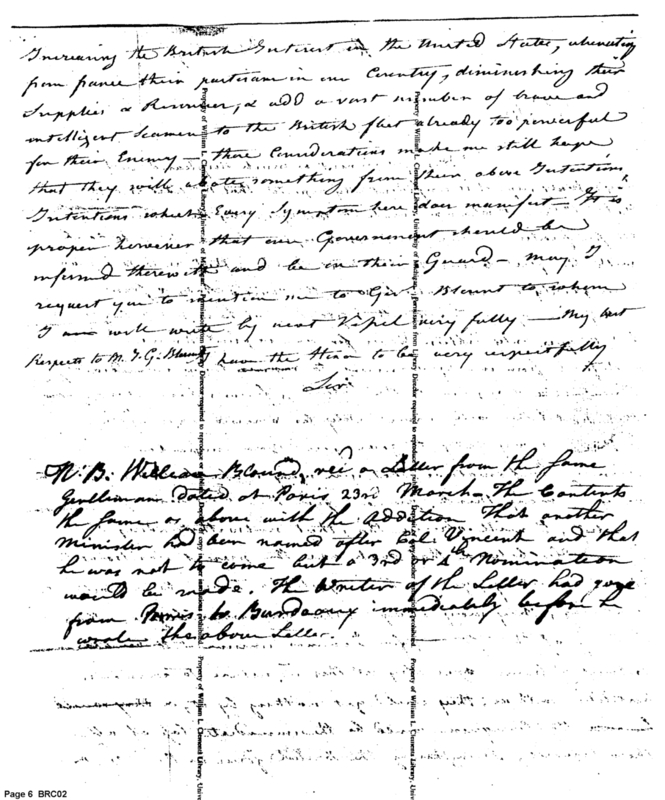 Increasing the British Interest in the United States, alienating
from france their partisans in our Country, diminishing their
Supplies & Resources, & add a vast number of brave and
intelligent Seamen to the British fleet already too powerful
for their Enemy – these Considerations make me still hope
that they will abate something from their above Intentions,
Intentions which Every Symptom here does manifest. It is
proper however that our Government should be
informed therewith and be on their Guard – may I
request you to mention me to Govr Blount to whom
I will write by next Vessel very fully – My best
Respects to M. J. G. Blount I have the Honor to be very respectfully
Sir
N.B. William Blound, recd a Letter from the Same
Gentleman dated at Paris 23rd March – The Contents
the Same as above with the addition That another
Minister had been named after Col. Vincent and that
he was not to come but a 3rd or 4th Nomination
would be made. The Writer of the Letter had gone
from Paris to Burdeaux immediately before he
wrote the above Letter.
Property of William L. Clements Library, University of Michigan. Permission from Library Director required to reproduce or
Property of William L. Clements Library, University of Michigan. Permission from Library Director required to reproduce or
Property of William L. Clements Library, Univer
Property of William L. Clements Library, Univer
Page 6 BRC02